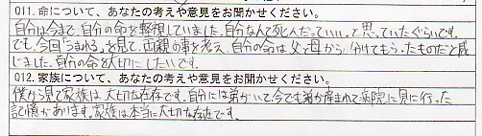 011.命について、あなたの考えや意見をお聞かせください。
自分は今まで、自分の命を軽視していました。自分なんて死んだっていい。と思っていたぐらいです。
でも、今回「うまれる」を見て、両親の事を考え、自分の命は父と母から分けてもらったものだと感
じました。自分の命を大切にしたいです。
012.家族について、あなたの考えや意見をお聞かせください。
僕から見て家族は大切な存在です。自分には弟がいて今でも弟が産まれて病院に見に行った
記憶があります。家族は本当に大切な存在です。